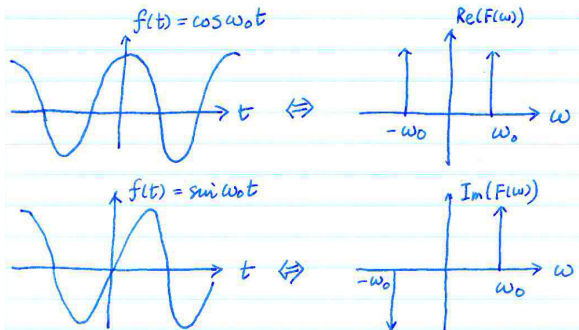 f(t) = cos ω₀t
Re(F(ω))
t ⇔
-ω₀ ω₀ ω
f(t) = sin ω₀t
Im(F(ω))
t ⇔
-ω₀ ω₀ ω